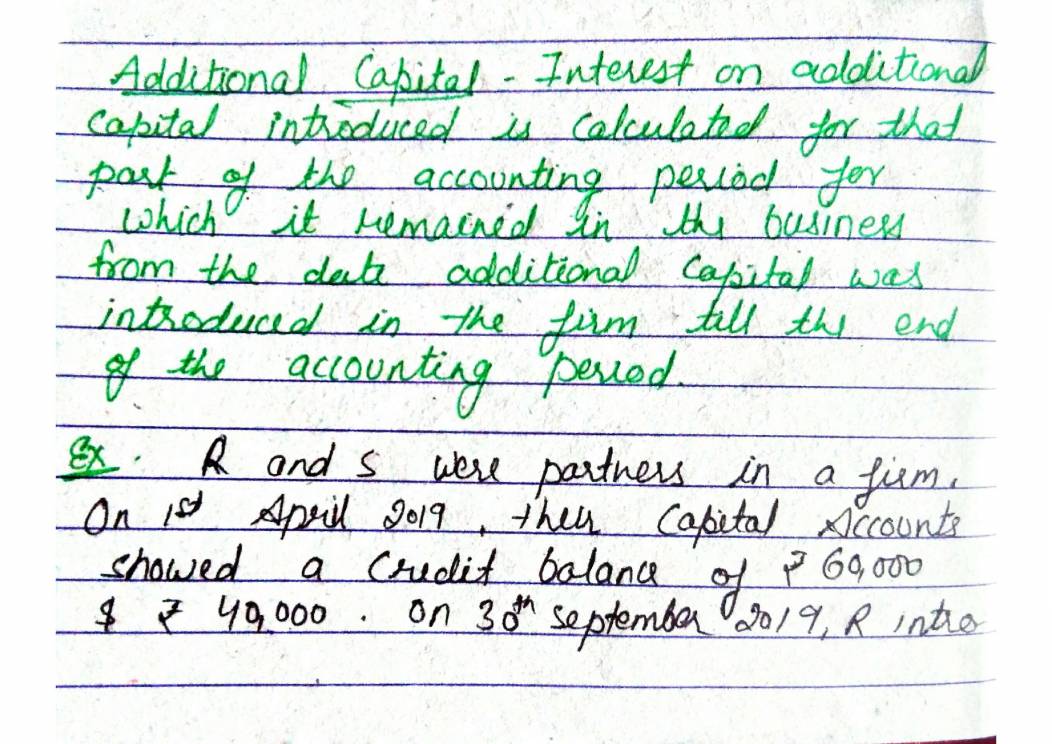 Additional Capital - Interest on additional
capital introduced is calculated for that
part of the accounting period for
which it remained in the business
from the date additional capital was
introduced in the firm till the end
of the accounting period.
Ex. R and S were partners in a firm.
On 1st April 2019, their Capital Accounts
showed a Credit balance of ₹ 60,000
& ₹ 40,000. On 30th September 2019, R intro